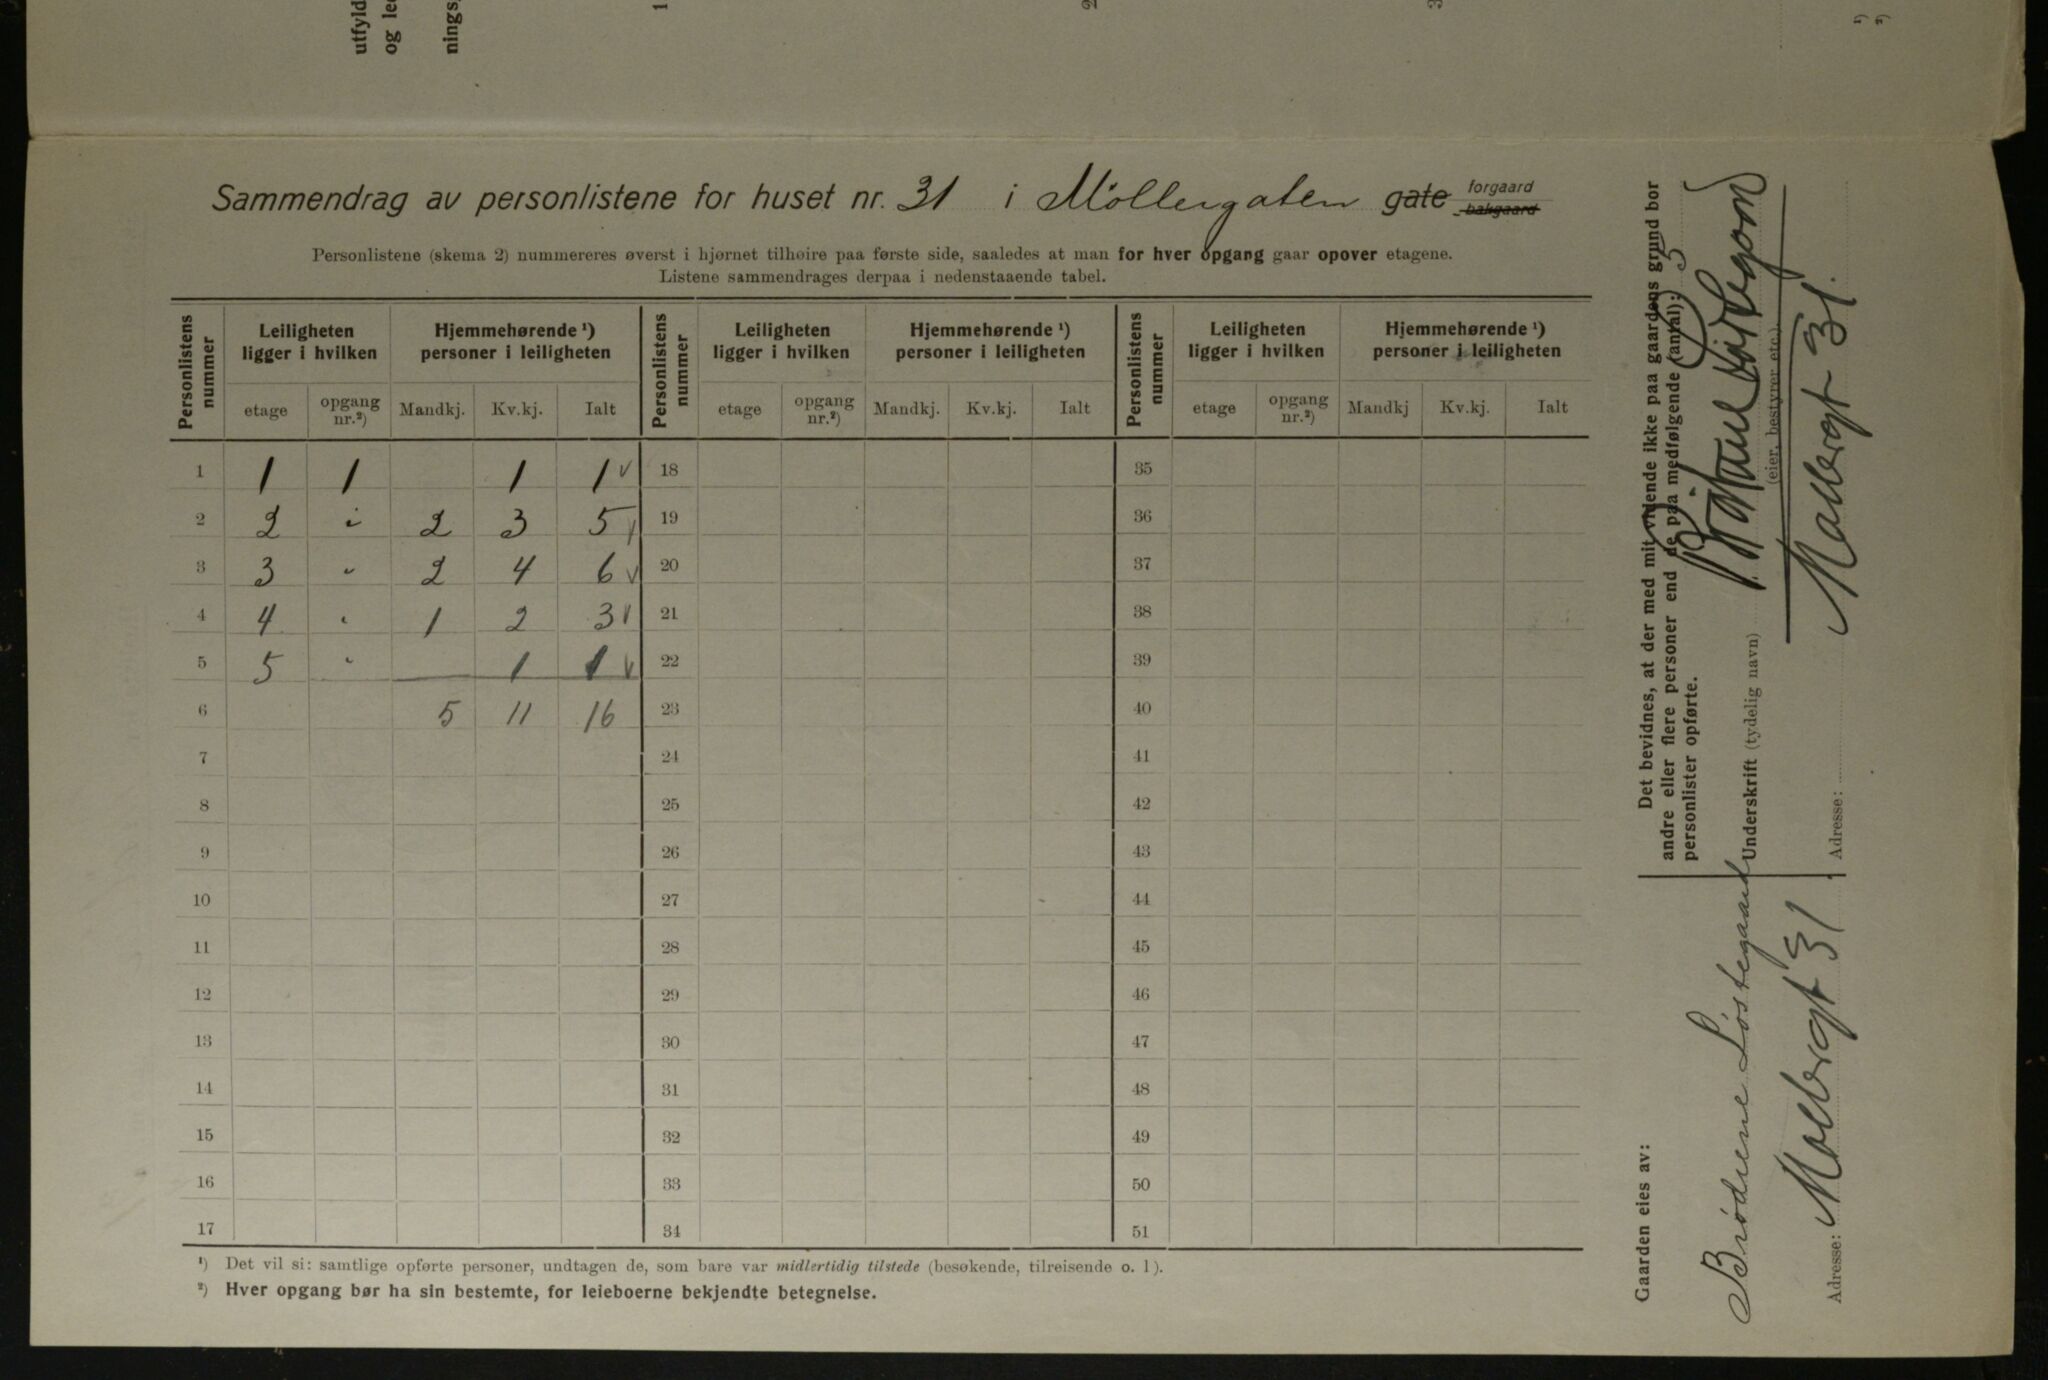 utfyld
og le
nings
1
2
3
¹)
²)
Sammendrag av personlistene for huset nr. 31 i Möllergaten gate forgaard bakgaard
Personlistene (skema 2) nummereres øverst i hjørnet tilhøire paa første side, saaledes at man for hver opgang gaar opover etagene.
Listene sammendrages derpaa i nedenstaaende tabel.
Personlistens nummer | Leiligheten ligger i hvilken | Hjemmehørende ¹) personer i leiligheten | Personlistens nummer | Leiligheten ligger i hvilken | Hjemmehørende ¹) personer i leiligheten | Personlistens nummer | Leiligheten ligger i hvilken | Hjemmehørende ¹) personer i leiligheten
etage | opgang nr.²) | Mandkj. | Kv.kj. | Ialt | etage | opgang nr.²) | Mandkj. | Kv.kj. | Ialt | etage | opgang nr.²) | Mandkj | Kv.kj. | Ialt
1 | 1 | 1 | | 1 | 1 √ | 18 | 35
2 | 2 | " | 2 | 3 | 5 √ | 19 | 36
3 | 3 | " | 2 | 4 | 6 √ | 20 | 37
4 | 4 | " | 1 | 2 | 3 √ | 21 | 38
5 | 5 | " | | 1 | 1 √ | 22 | 39
6 | | | 5 | 11 | 16 | 23 | 40
7 | 24 | 41
8 | 25 | 42
9 | 26 | 43
10 | 27 | 44
11 | 28 | 45
12 | 29 | 46
13 | 30 | 47
14 | 31 | 48
15 | 32 | 49
16 | 33 | 50
17 | 34 | 51
¹) Det vil si: samtlige opførte personer, undtagen de, som bare var midlertidig tilstede (besøkende, tilreisende o. l).
²) Hver opgang bør ha sin bestemte, for leieboerne bekjendte betegnelse.
Det bevidnes, at der med mit vidende ikke paa gaardens grund bor
andre eller flere personer end de paa medfølgende (antal): 5
personlister opførte.
Underskrift (tydelig navn)
(eier, bestyrer etc.)
Adresse: Møllergt 31.
Gaarden eies av:
Brødrene Løstegaard
Adresse: Møllergt 31